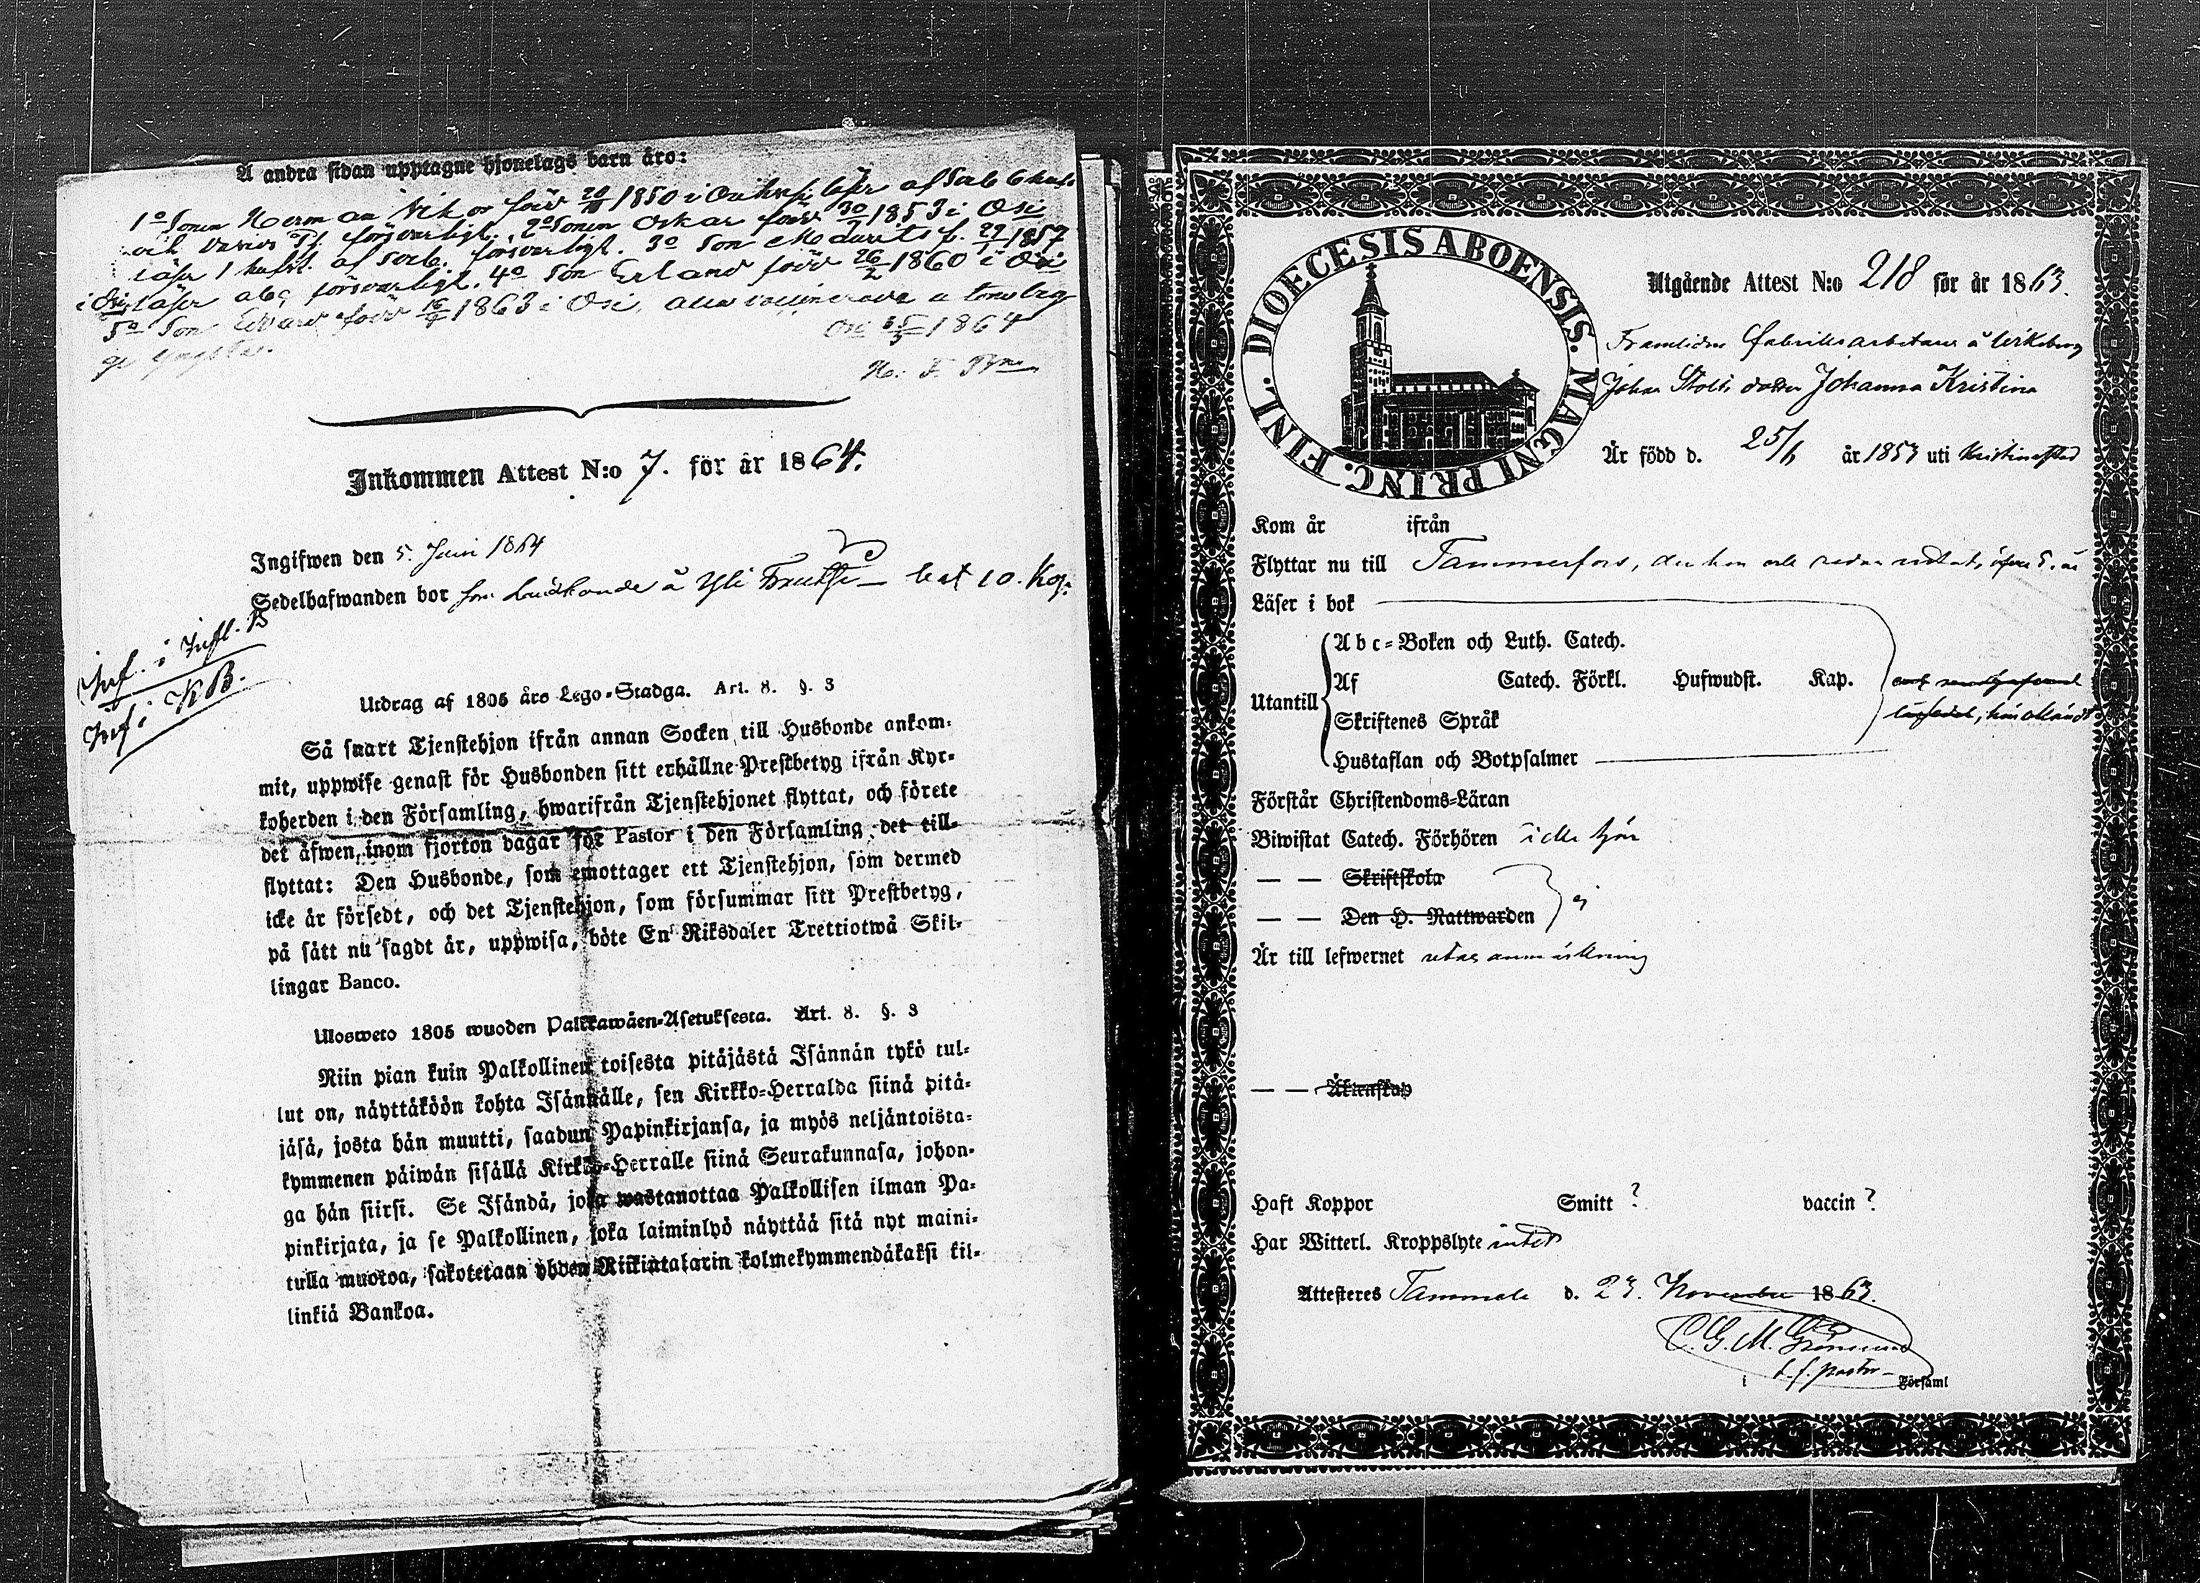 Å andra sidan upptagne hjonelags barn äro:
1o Sonen Herman Viktor född 1850 i
försvarligt. 2o Sonen Oskar född 30/ 1853 i Osi
läser 1 af försvarligt. 3o Son f. 29/1 1857
i Osi, läser abc försvarligt. 4o Son Erland född 26/2 1860 i Osi
5o Son Edvard född 1863 i Osi, alla
1864
Inkommen Attest N:o 7. för år 1864.
Ingifwen den 5. Juni 1864
Sedelhafwanden bor som å Yli 10. Kop.
Inf. i Infl. B
Inf i KB.
Utdrag af 1805 års Lego-Stadga. Art. 8. §. 3
Så snart Tjenstehjon ifrån annan Socken till Husbonde ankom-
mit, uppwise genast för Husbonden sitt erhållne Prestbetyg ifrån Kyr-
koherden i den Församling, hwarifrån Tjenstehjonet flyttat, och förete
det äfwen, inom fjorton dagar för Pastor i den Församling det till-
flyttat: Den Husbonde, som emottager ett Tjenstehjon, som dermed
icke är försedt, och det Tjenstehjon, som försummar sitt Prestbetyg,
på sätt nu sagdt är, uppwisa, böte En Riksdaler Trettiotwå Skil-
lingar Banco.
Ulosweto 1805 wuoden Palkkawäen-Asetuksesta. Art. 8. §. 3
Niin pian kuin Palkollinen toisesta pitäjästä Isännän tykö tul-
lut on, näyttäköön kohta Isännälle, sen Kirkko-Herralda siinä pitä-
jäsä, josta hän muutti, saadun Papinkirjansa, ja myös neljäntoista-
kymmenen päiwän sisällä Kirkko-Herralle siinä Seurakunnasa, johon-
ga hän siirsi. Se Isändä, joka wastanottaa Palkollisen ilman Pa-
pinkirjata, ja se Palkollinen, joka laiminlyö näyttää sitä nyt maini-
tulla muotoa, sakotetaan yhden Riikintalarin kolmekymmendäkaksi kil-
linkiä Bankoa.
DIOECESIS ABOENSIS. MAGNI PRINC. FINL.
Utgående Attest N:o 218 för år 1863.
Framlidne Fabriksarbetaren å
Johan Stolts dotter Johanna Kristina
Är född d. 25/6 år 1853 uti Kristinestad
Kom år ifrån
Flyttar nu till Tammerfors, der hon
Läser i bok
Abc-Boken och Luth. Catech.
Utantill Af Catech. Förkl. Hufwudst. Kap.
Skriftenes Språk
Hustaflan och Botpsalmer
Förstår Christendoms-Läran
Biwistat Catech. Förhören icke här
— — Skriftskola
— — Den H. Nattwarden ej
Är till lefwernet utan anmärkning
— — Äktenskap
Haft Koppor Smitt ? vaccin ?
Har Witterl. Kroppslyte intet
Attesteres Tammela d. 23. November 1863.
C. G. M.
t. f. pastor
i Församl